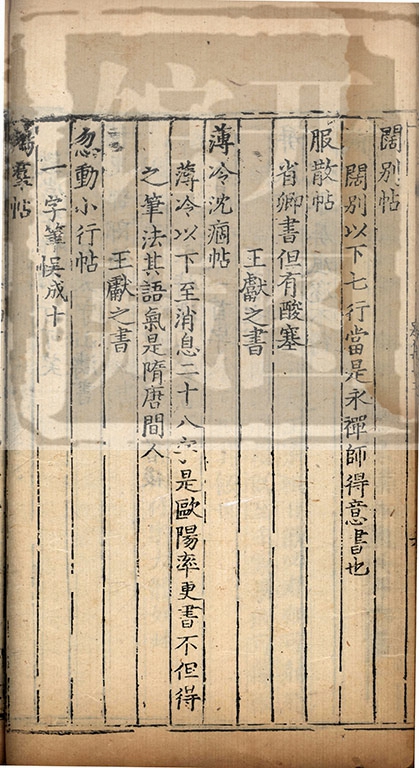 闊别帖
闊别以下七行當是永禪師得意書也
服散帖
省卿書但有酸塞
王獻之書
薄冷沈痼帖
薄冷以下至消息二十八字是歐陽率更書不但得
之筆法其語氣是隋唐間人
王獻之書
忽動小行帖
一字筆悞成十
鵝羣帖